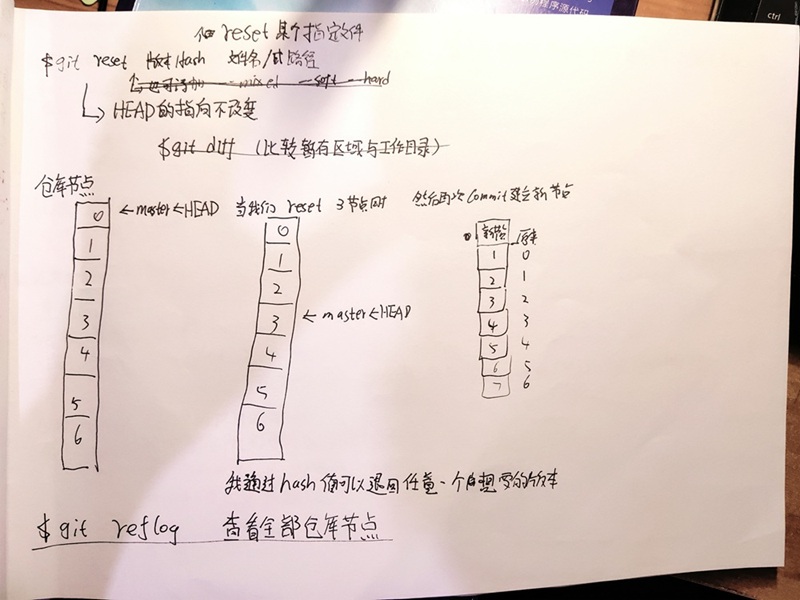 程序源代码
ctrl
reset 某个指定文件
$git reset 版本Hash 文件名/路径
也可添加 --mixed --soft --hard
HEAD的指向不改变
$git diff (比较暂存区域与工作目录)
仓库节点
←master←HEAD
当我们 reset 3节点时
然后再次Commit建立新节点
0
1
2
3
4
5
6
0
1
2
3
4
5
6
←master←HEAD
新节点 原来
1 0
2 1
3 2
4 3
5 4
6 5
7 6
我通过hash值可以退回任意一个自己想要的版本
$git reflog 查看全部仓库节点